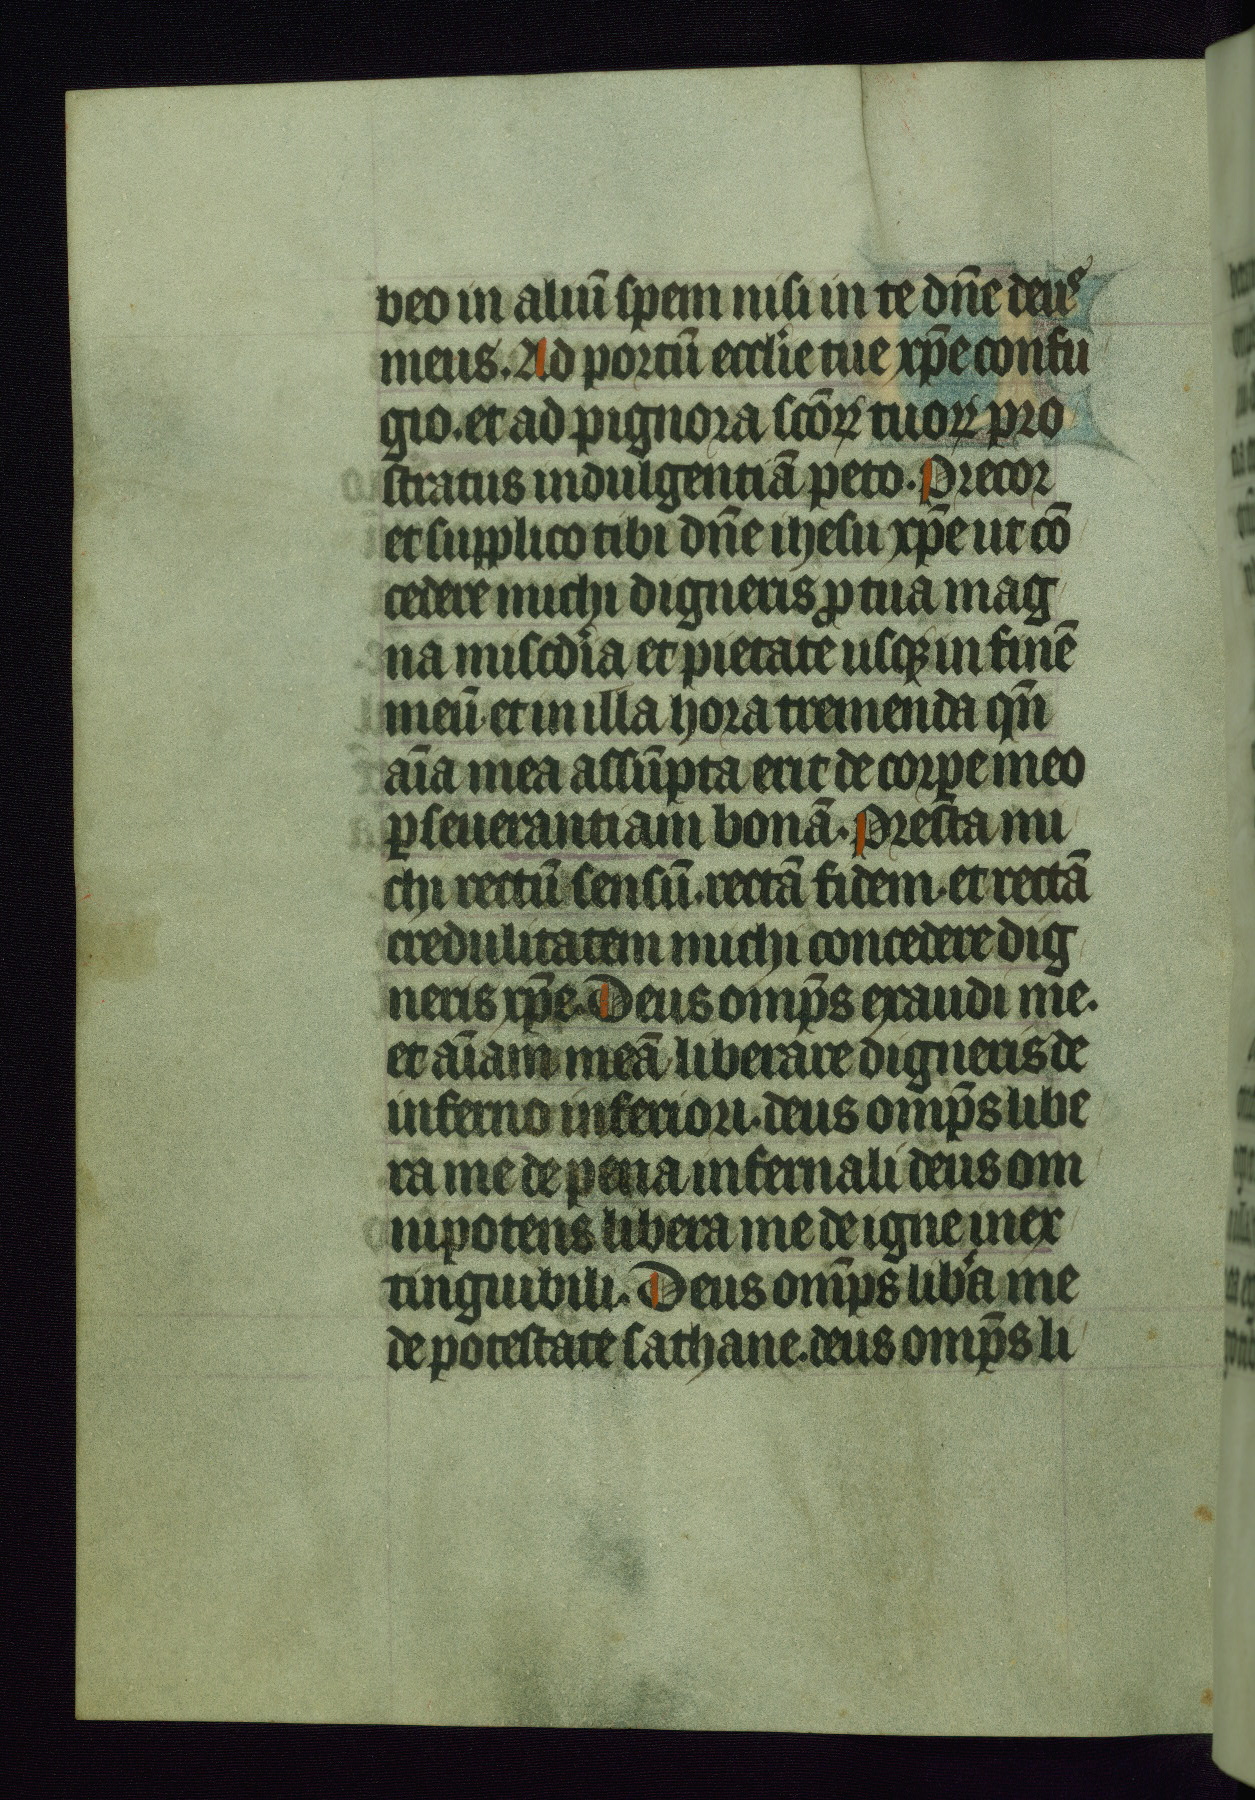 beo in aliū spem nisi in te dn̄e deꝰ
meus. Ad portū ecclīe tue xp̄e confu
gio. et ad pignora scōꝝ tuoꝝ pro
stratus indulgentiā peto. Precor
et supplico tibi dn̄e ihesu xp̄e ut cō
cedere michi digneris ꝓ tua mag
na miscd̄ia et pietate usqꝫ in finē
meū. et in illa hora tremenda qn̄
aīa mea assūpta erit de corꝑe meo
ꝑseuerantiam bonā. Presta mi
chi rectū sensū. rectā fidem. et rectā
credulitatem michi concedere dig
neris xp̄e. Deus omp̄s exaudi me.
et aīam meā liberare digneris de
inferno inferiori. deus omp̄s libe
ra me de pena infernali deus om
nipotens libera me de igne inex
tinguibili. Deus omp̄s lib̾a me
de potestate sathane. deus omp̄s li